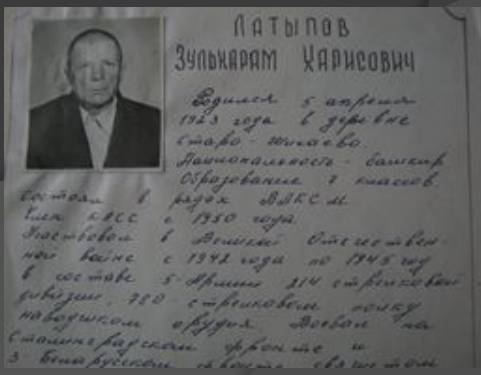 ЛАТЫПОВ
ЗУЛЬКАРАМ ХАРИСОВИЧ
Родился 5 апреля
1923 года в деревне
Старо-
Национальность - башкир
Образование 7 классов.
Состоял в рядах ВЛКСМ
Член КПСС с 1950 года.
Участвовал в Великой Отечествен-
ной войне с 1942 года по 1945 год
в составе 5-Армии 214 стрелковой
дивизии, 780-стрелковом полку
наводчиком орудия Воевал на
Сталинградском фронте и
3 Беларусском фронте связистом